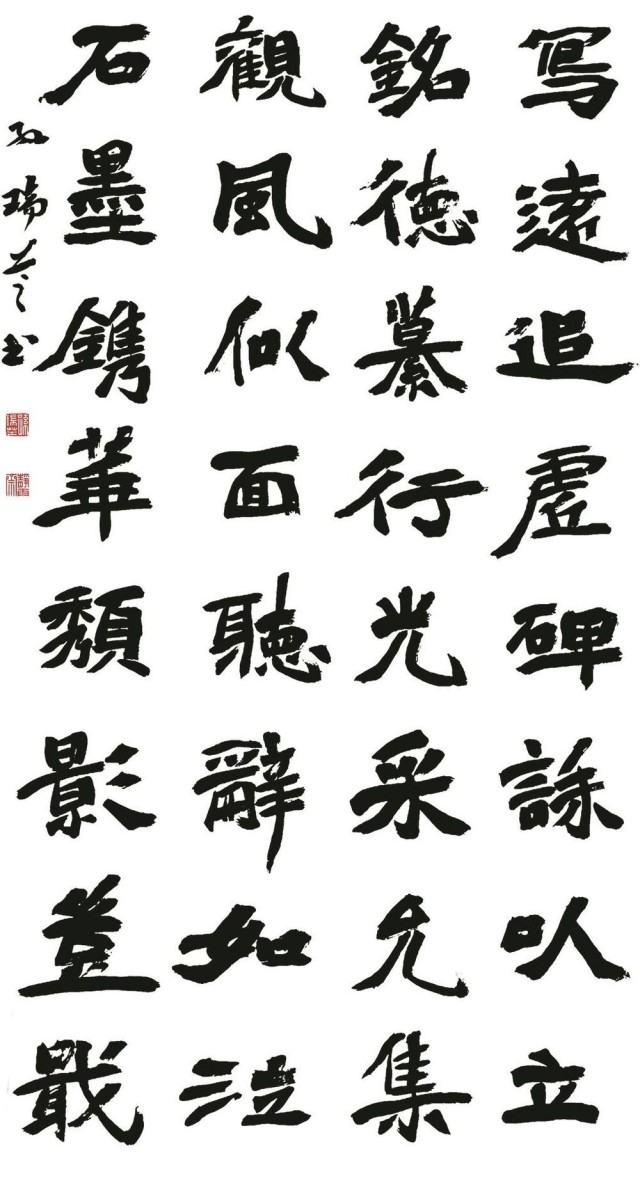 寫遠追虛碑誄以立
銘德慕行光采允集
觀風似面聽辭如泣
石墨鐫華頽影豈戢
孫瑞芝書